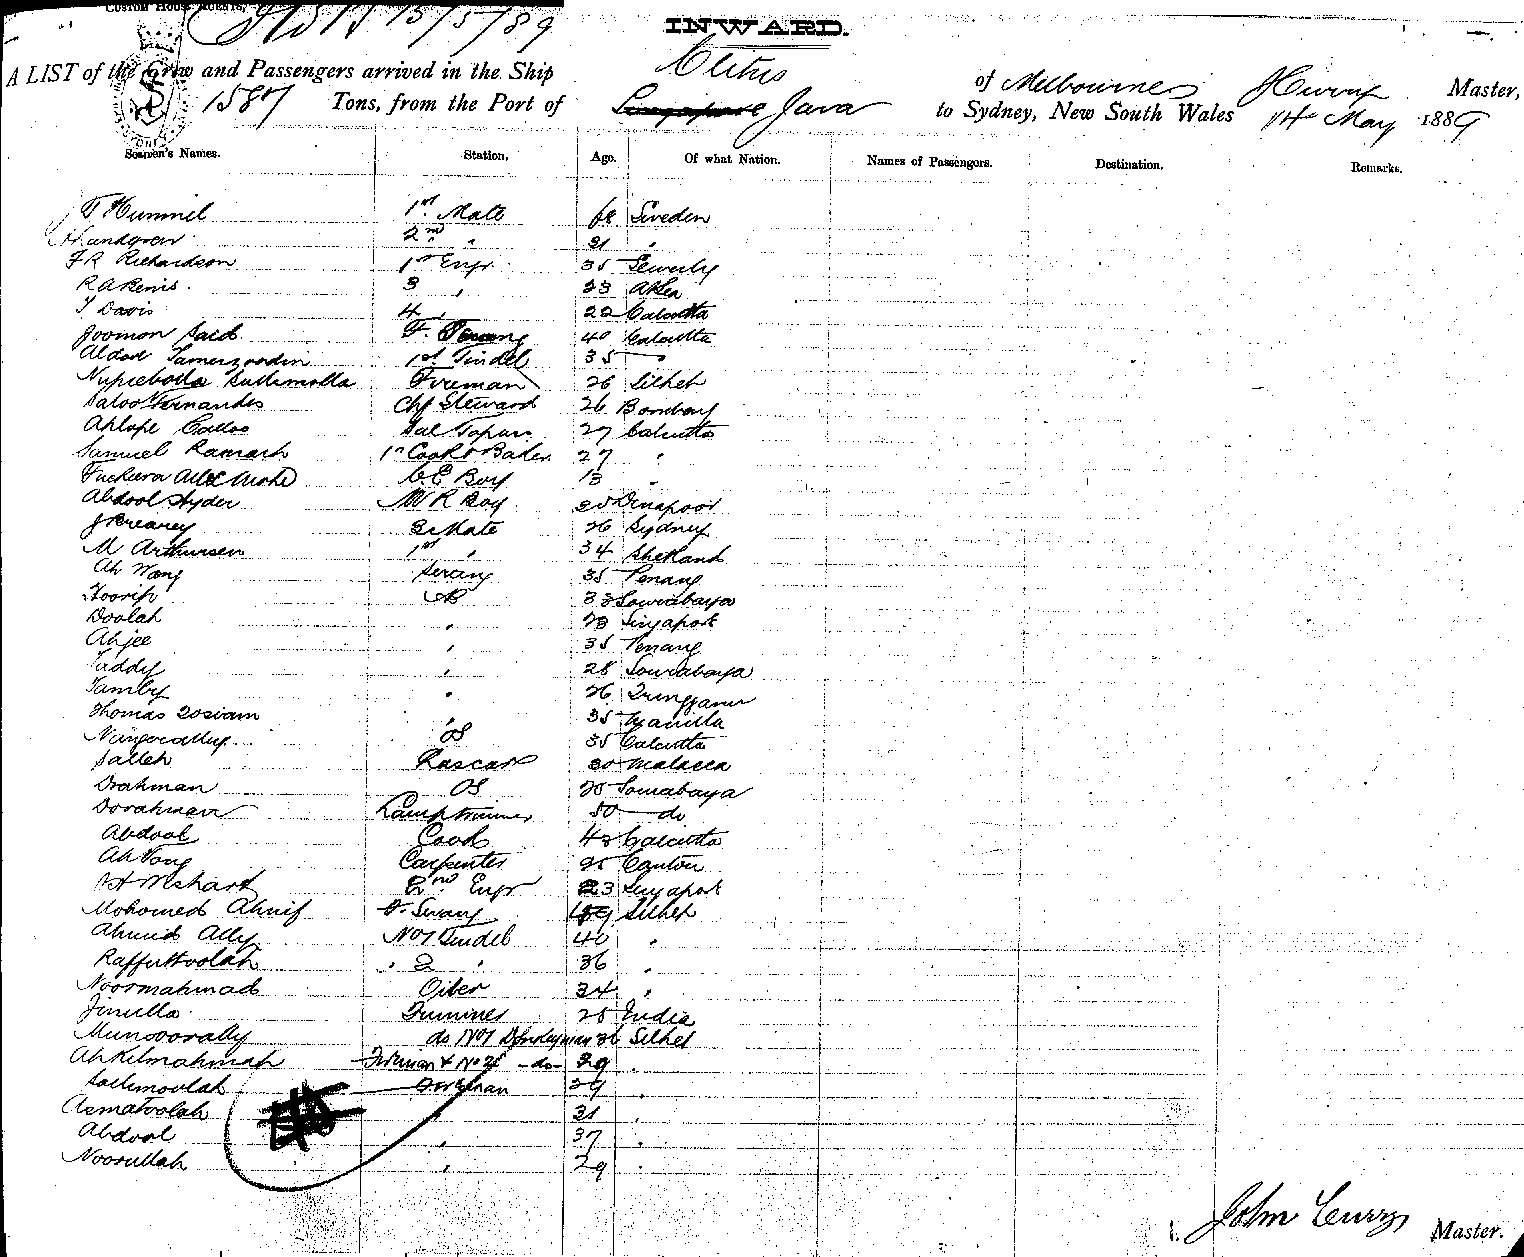 CUSTOM HOUSE AGENTS,
15/5/89
INWARD.
A LIST of the Crew and Passengers arrived in the Ship Clitus of Melbourne J Curry Master,
1587 Tons, from the Port of Singapore Java to Sydney, New South Wales 14 May 1889
Seamen's Names. Station. Age. Of what Nation. Names of Passengers. Destination. Remarks.
T Hummel 1st Mate Sweden
2nd " 31 "
F R Richardson 1st Engr 35
3 " 23
T Davis 4 " 22 Calcutta
Joomon Said 40 Calcutta
1st Tindel 35 "
Fireman 26 Silhet
Saloo Fernandes Chf Steward 26 Bombay
27 Calcutta
Samuel Ramash 1st Cook & Baker 27 "
Boy 13 "
Abdool Hyder M R Boy Dinapoor
3 Mate 26 Sydney
M Arthursen 1st " 34 Shetland
Ah Wang Serang 35 Penang
Toorip AB 33 Sourabaya
Doolah " 23 Singapore
Ahjee " 35 Penang
Taddy " 28 Sourabaya
Tamby " 26 Tringganu
Thomas " 35 Manilla
OS 35 Calcutta
Salleh Lascar 30 Malacca
Drahman OS 25 Sourabaya
Dorahman Lamptrimmer 50 do
Abdool Cook 43 Calcutta
Ah Fong Carpenter 25 Canton
2nd Engr 23 Singapore
Mohomed Ahnif F. Serang Silhet
Ahmid Ally No 1 Tindel 40 "
Raffuttoolah " 2 " 36 "
Noormahmad Oiler 34 "
Jinulla 25 India
Munsoorally do No 1 36 Silhet
Ahkilmahmah Fireman & No 2 -do- 29 "
Sallimoolah Fireman 29 "
Asmatoolah 31 "
Abdool " 37 "
Noorullah " 29 "
John Curry Master.